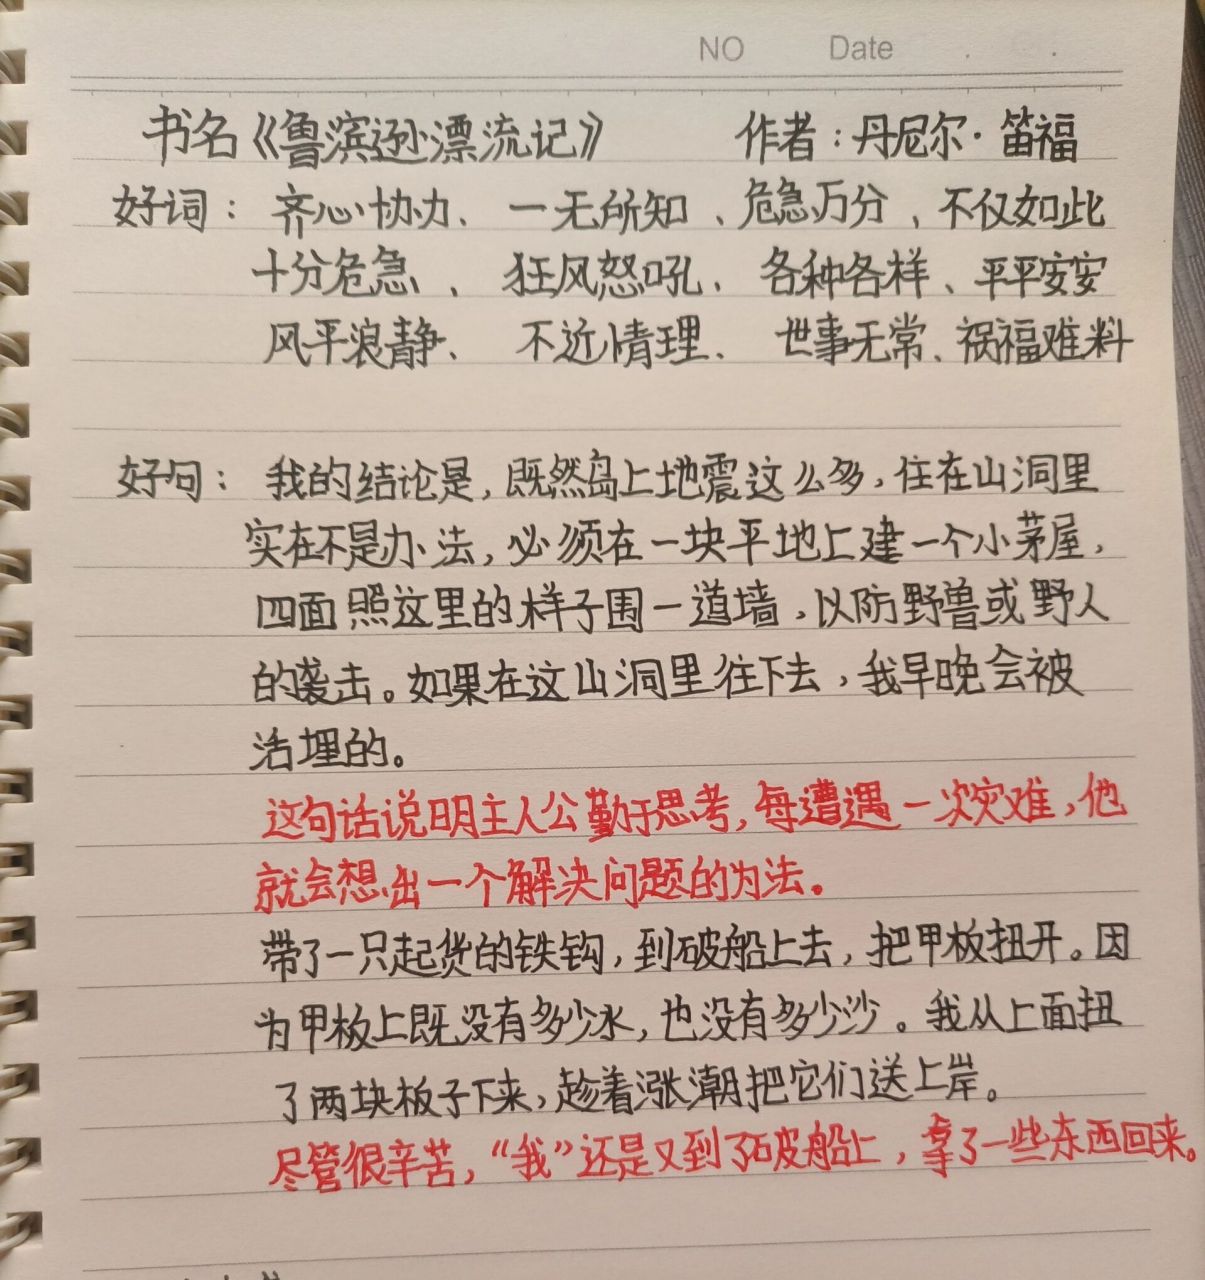 NO Date
书名《鲁滨逊漂流记》 作者：丹尼尔·笛福
好词：齐心协力、一无所知、危急万分，不仅如此
十分危急、狂风怒吼、各种各样、平平安安
风平浪静、不近情理、世事无常、祸福难料
好句：我的结论是，既然岛上地震这么多，住在山洞里
实在不是办法，必须在一块平地上建一个小茅屋，
四面照这里的样子围一道墙，以防野兽或野人
的袭击。如果在这山洞里往下去，我早晚会被
活埋的。
这句话说明主人公勤于思考，每遭遇一次灾难，他
就会想出一个解决问题的为法。
带了一只起货的铁钩，到破船上去，把甲板扭开。因
为甲板上既没有多少水，也没有多少沙。我从上面扭
了两块板子下来，趁着涨潮把它们送上岸。
尽管很辛苦，“我”还是又到了破船上，拿了一些东西回来。